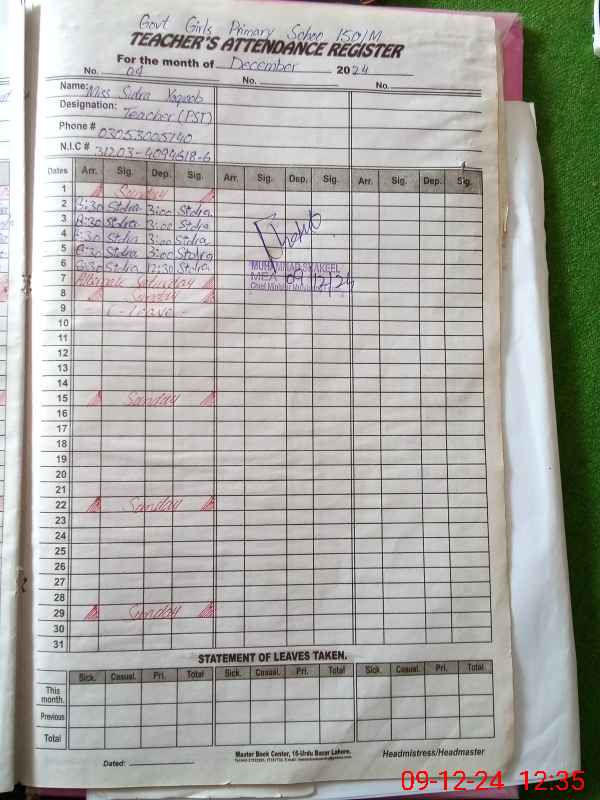 Govt Girls Primary School 150/M
TEACHER'S ATTENDANCE REGISTER
For the month of December 2024
No. 04 No. No.
Name: Miss Sidra Yaqoob
Designation: Teacher (PST)
Phone # 03053005140
N.I.C # 31203-4094618-6
Dates Arr. Sig. Dep. Sig. Arr. Sig. Dep. Sig. Arr. Sig. Dep. Sig.
1 Sunday
2 8:30 Sidra 3:00 Sidra
3 8:30 Sidra 3:00 Sidra
4 8:30 Sidra 3:00 Sidra
5 8:30 Sidra 3:00 Sidra
6 8:30 Sidra 12:30 Sidra
MUHAMMAD SHAKEEL
MEA 09/12/24
7 Saturday
Chief Minister
8 Sunday
9 - C-Leave -
10
11
12
13
14
15 Sunday
16
17
18
19
20
21
22 Sunday
23
24
25
26
27
28
29 Sunday
30
31
STATEMENT OF LEAVES TAKEN.
Sick. Casual. Pri. Total Sick. Casual. Pri. Total Sick. Casual. Pri. Total
This month.
Previous
Total
Dated:
Master Book Center, 16-Urdu Bazar Lahore.
Headmistress/Headmaster
09-12-24 12:35